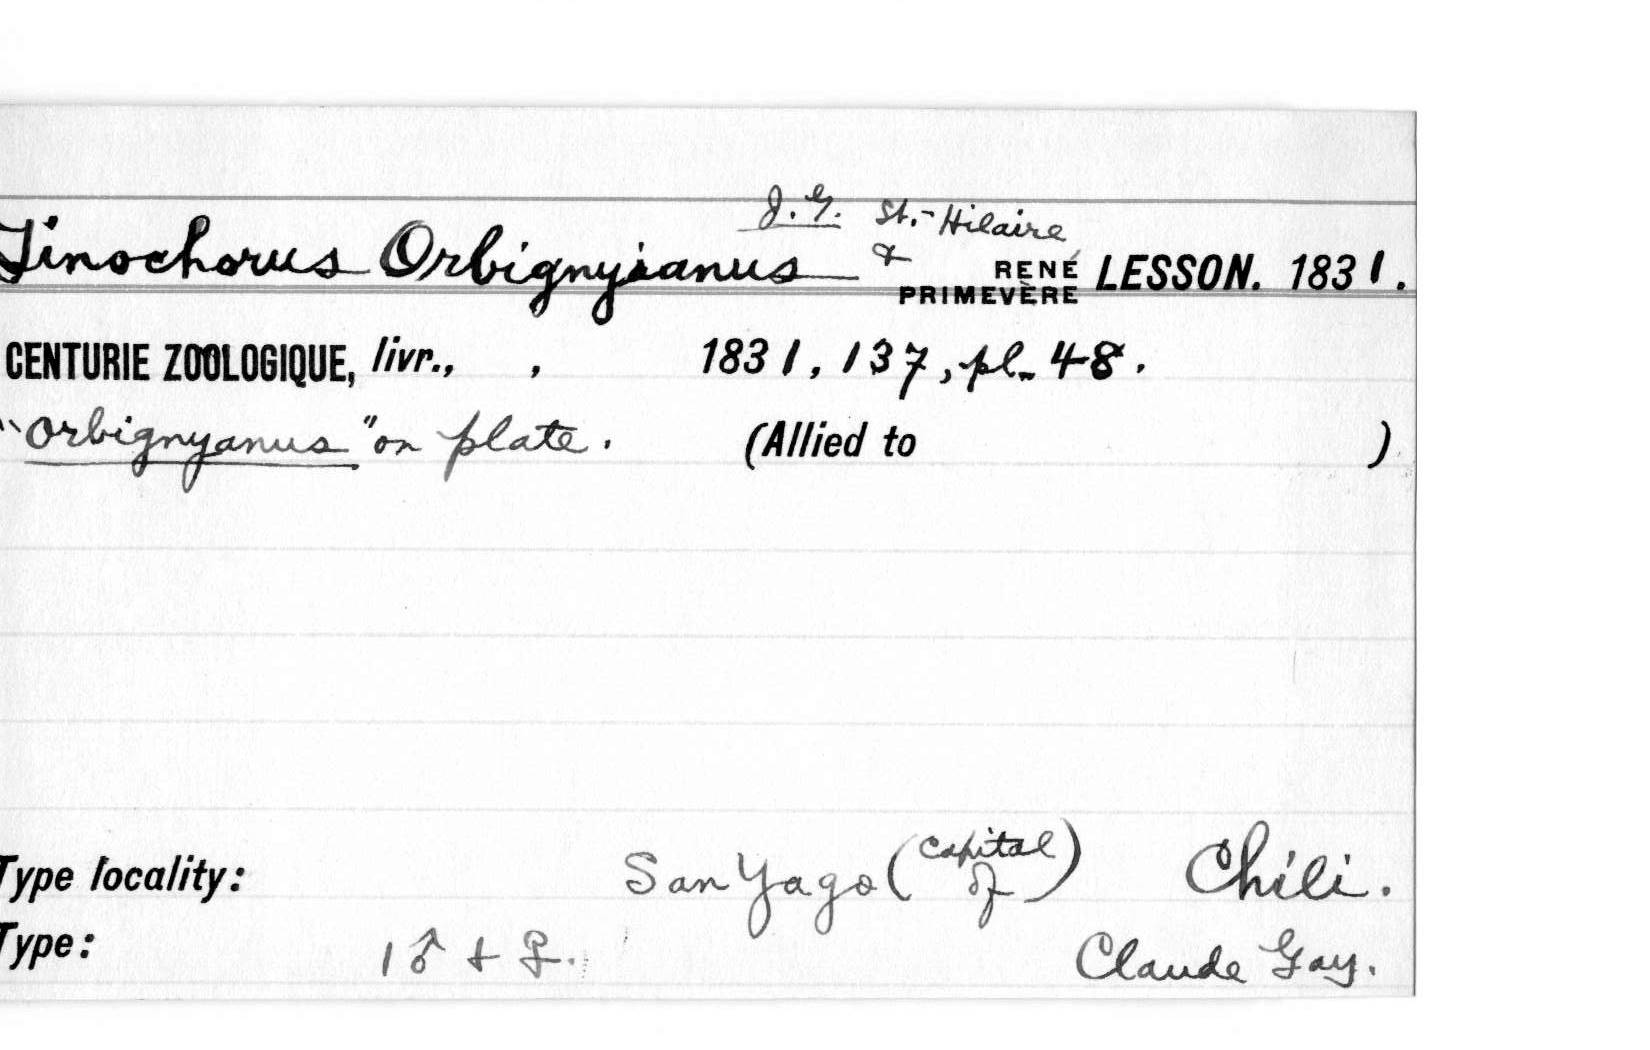 J. G. St.-Hilaire
Tinochorus Orbignyianus & RENÉ PRIMEVÈRE LESSON. 1831.
CENTURIE ZOOLOGIQUE, livr., , 1831, 137, pl. 48.
"Orbignyanus" on plate. (Allied to )
Type locality: San Yago (capital of) Chili.
Type: 1 ♂ + ♀. Claude Gay.